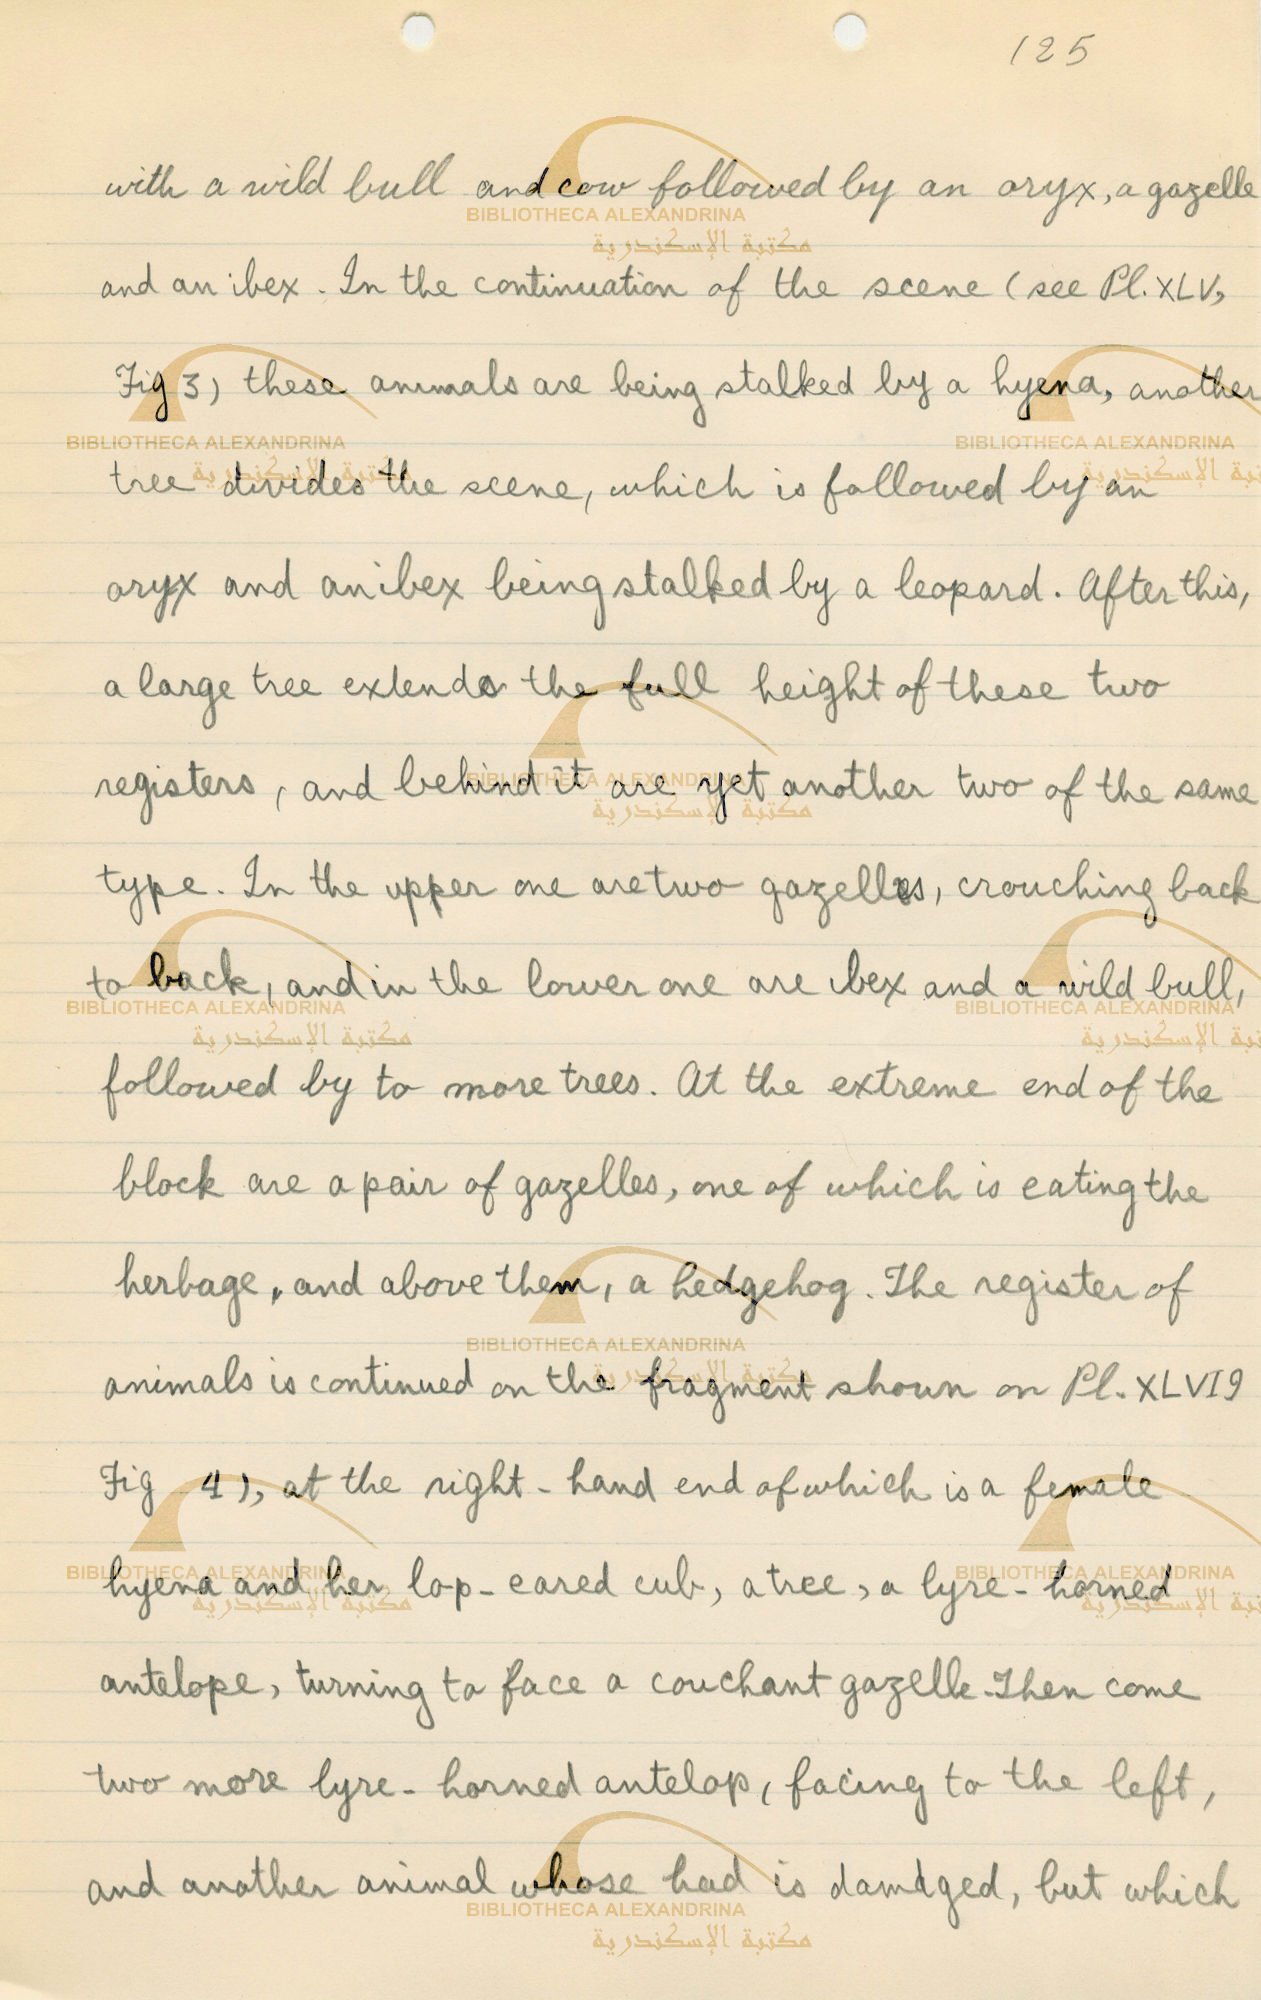 125
with a wild bull and cow followed by an oryx, a gazelle
and an ibex. In the continuation of the scene (see Pl. XLV,
Fig 3) these animals are being stalked by a hyena, another
tree divides the scene, which is followed by an
oryx and an ibex being stalked by a leopard. After this,
a large tree extends the full height of these two
registers, and behind it are yet another two of the same
type. In the upper one are two gazelles, crouching back
to back, and in the lower one are ibex and a wild bull,
followed by to more trees. At the extreme end of the
block are a pair of gazelles, one of which is eating the
herbage, and above them, a hedgehog. The register of
animals is continued on the fragment shown on Pl. XLVI9
Fig 4), at the right-hand end of which is a female
hyena and her lop-eared cub, a tree, a lyre-horned
antelope, turning to face a couchant gazelle. Then come
two more lyre-horned antelop, facing to the left,
and another animal whose had is damdged, but which
BIBLIOTHECA ALEXANDRINA
مكتبة الإسكندرية